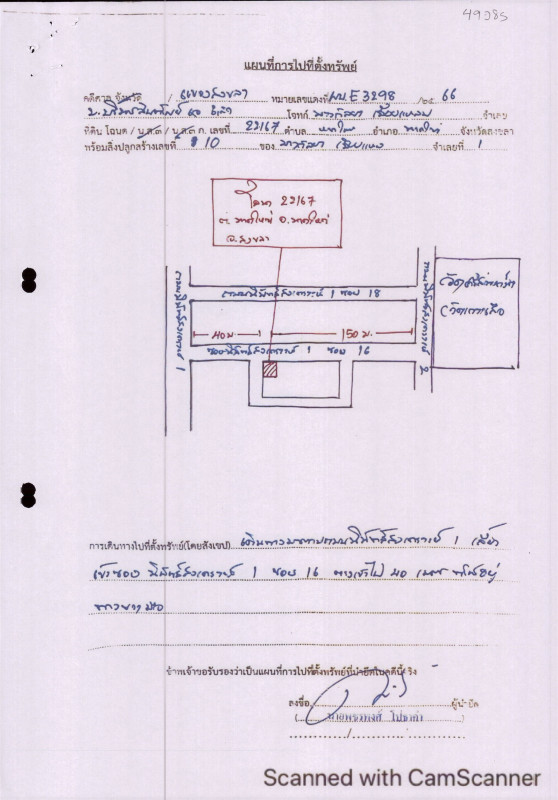 49385
แผนที่การไปที่ตั้งทรัพย์
คดีศาล จังหวัด / แขวงสงขลา หมายเลขแดงที่ ผบ.E3298 /๒๕ 66
โจทก์ จำเลย
ที่ดิน โฉนด / น.ส.๓ / น.ส.๓ ก. เลขที่ 22167 ตำบล หาดใหญ่ อำเภอ หาดใหญ่ จังหวัดสงขลา
พร้อมสิ่งปลูกสร้างเลขที่ 10 ของ จำเลยที่ 1
โฉนด 22167
ต. หาดใหญ่ อ. หาดใหญ่
จ. สงขลา
ถนนนิพัทธ์สงเคราะห์ 1 ซอย 18
40 ม. 150 ม.
ซอยนิพัทธ์สงเคราะห์ 1 ซอย 16
ถนนนิพัทธ์สงเคราะห์ 1
ถนนนิพัทธ์สงเคราะห์ 2
การเดินทางไปที่ตั้งทรัพย์(โดยสังเขป) เดินทางมาตามถนนนิพัทธ์สงเคราะห์ 1 เลี้ยว
เข้าซอย นิพัทธ์สงเคราะห์ 1 ซอย 16 ทางเข้าไป 40 เมตร ทรัพย์อยู่
ทางขวามือ
ข้าพเจ้าขอรับรองว่าเป็นแผนที่การไปที่ตั้งทรัพย์ที่นำยึดในคดีนี้จริง
ลงชื่อ ผู้นำยึด
Scanned with CamScanner